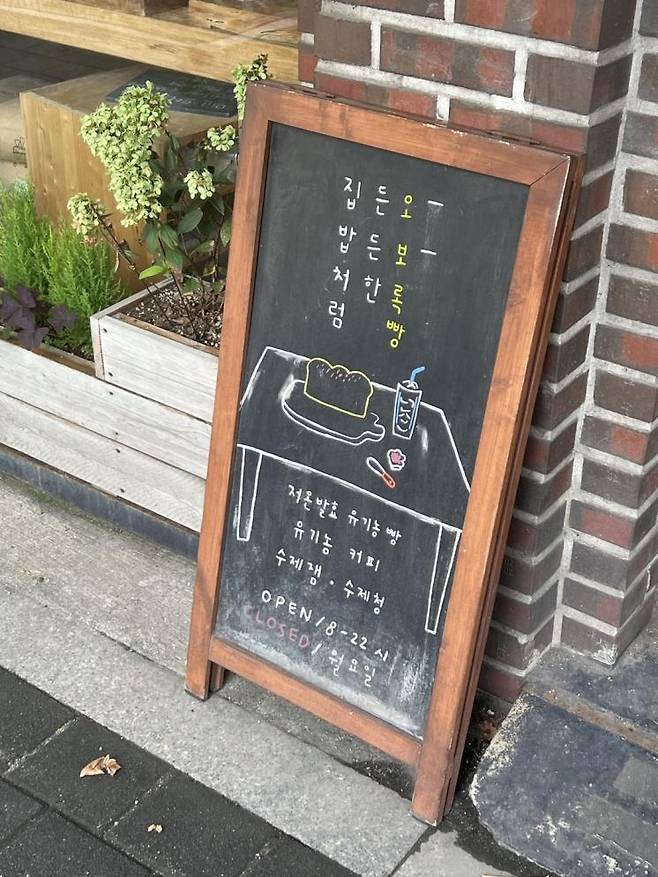 집밥처럼
든든한
오보록빵
저온발효 유기농빵
유기농 커피
수제잼 · 수제청
OPEN/8-22시
CLOSED/월요일